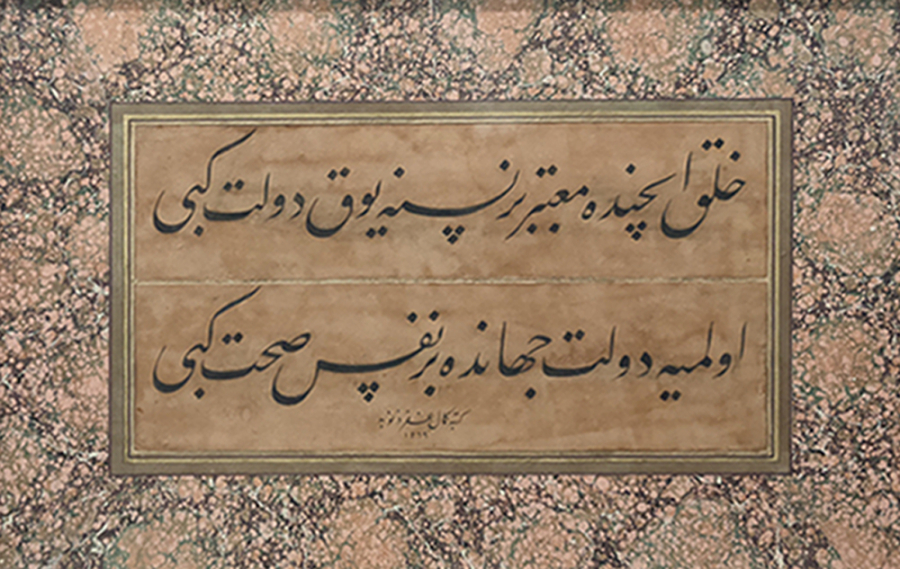 خلق ایچنده معتبر بر نسنه یوق دولت كبی
اولمیه دولت جهانده بر نفس صحت كبی
كتبه كمال غفر ذنوبه